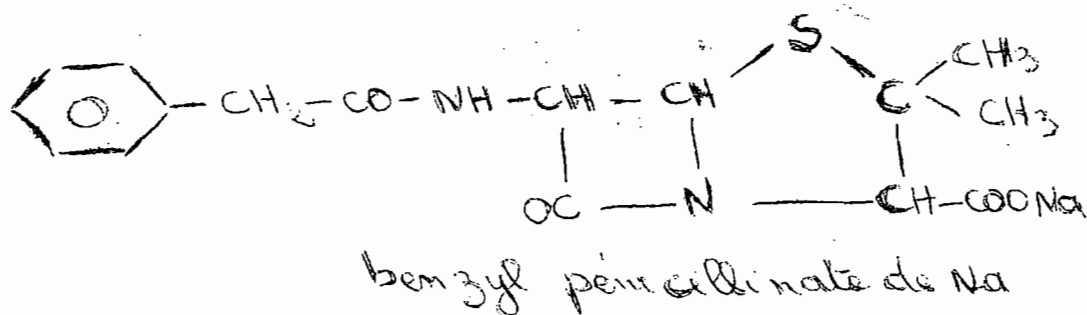 S
CH3
CH2-CO-NH-CH-CH
C
CH3
OC-N-CH-COONa
benzyl pénicillinate de Na